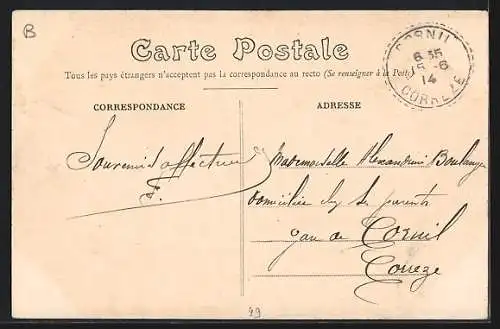 B
Carte Postale
Tous les pays étrangers n'acceptent pas la correspondance au recto (Se renseigner à la Poste)
CORNIL
6 35
15-6
14
CORREZE
CORRESPONDANCE
ADRESSE
Souvenirs affectueux
F.
Mademoiselle Alexandrine Boulange
domiciliée chez ses parents
gare de Cornil
Correze
49